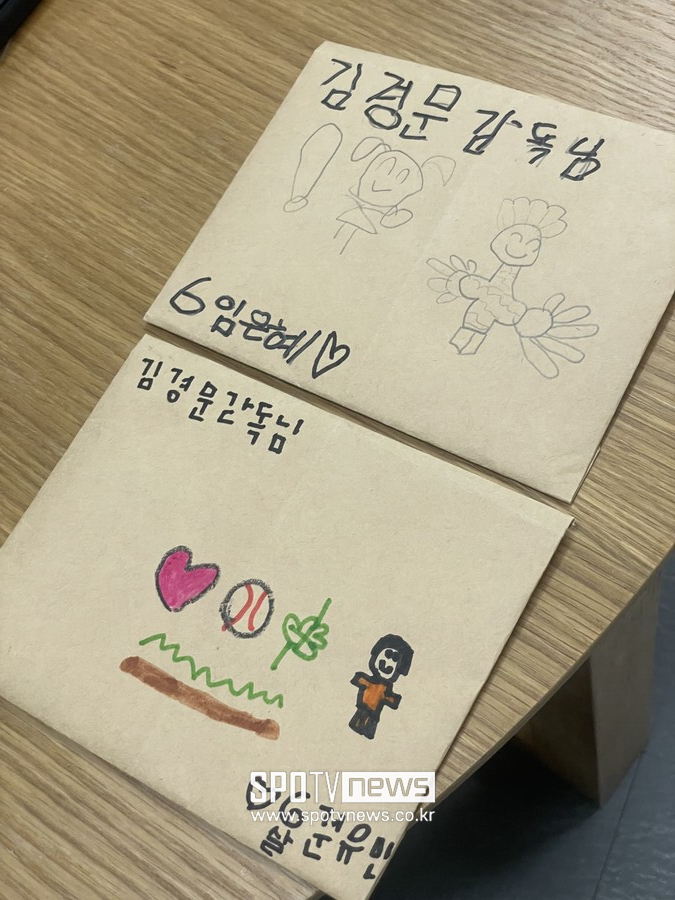 김경문 감독님
6 임은혜♡
김경문감독님
SPOTVnews
www.spotvnews.co.kr
6
유민